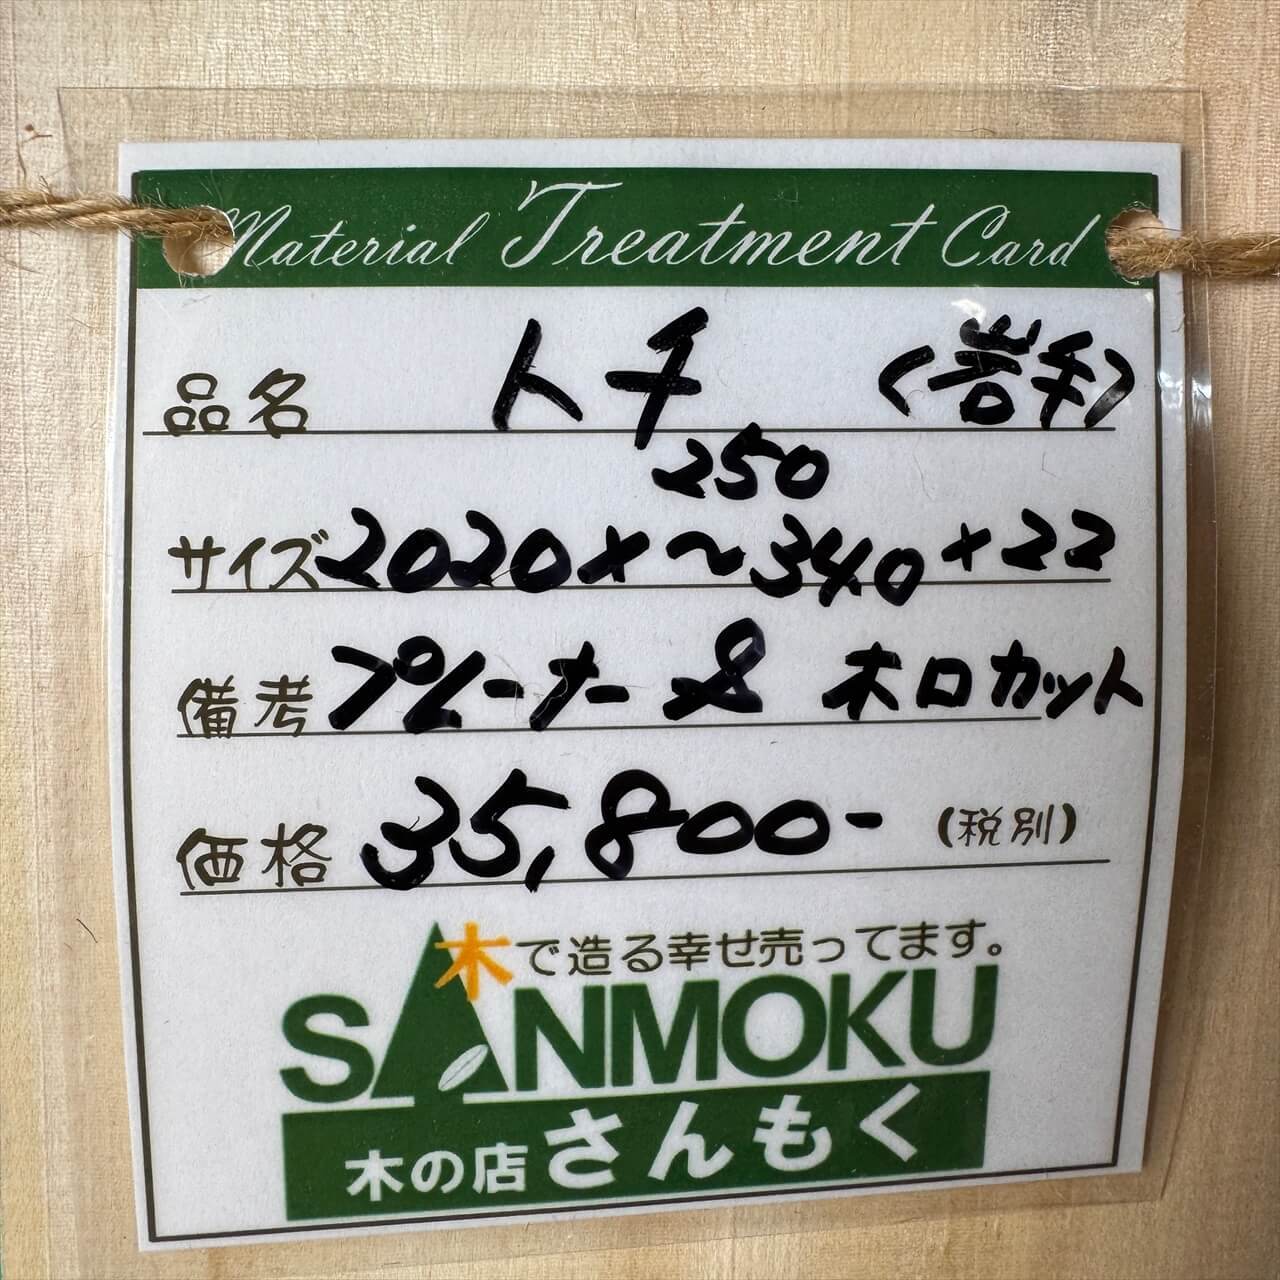 Material Treatment Card
品名 トチ (岩手)
250
サイズ 2020×～340×22
備考 プレーナー〆 木口カット
価格 35,800- (税別)
木で造る幸せ売ってます。
SANMOKU
木の店 さんもく